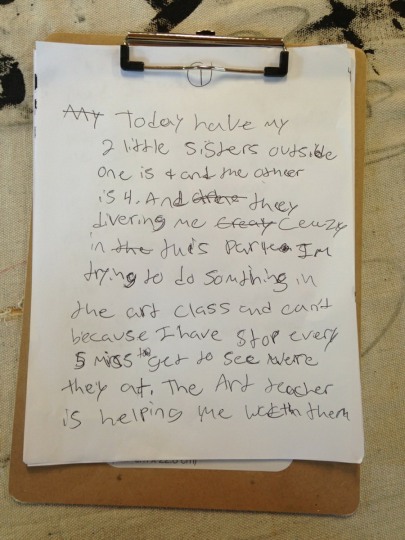 My Today have my
2 little sisters outside
one is 4 and the other
is 4. And they
divering me Ceuzy
in the this Parke I'm
trying to do somthing in
the art class and can't
because I have stop every
5 miss to get to see were
they at. The Art teacher
is helping me wacth them